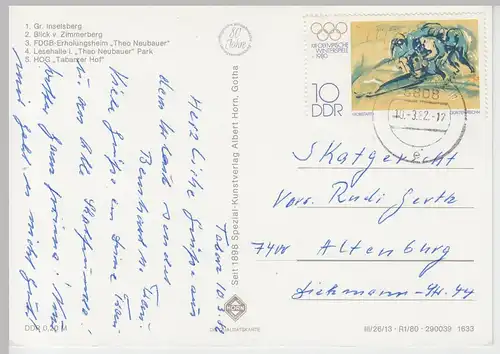 1. Gr. Inselsberg
2. Blick v. Zimmerberg
3. FDGB-Erholungsheim „Theo Neubauer"
4. Lesehalle i. „Theo Neubauer" Park
5. HOG „Tabarzer Hof"
80 Jahre
XIII. OLYMPISCHE
WINTERSPIELE
1980
10
DDR
5808
10.-3.82.-17
Tabarz 10.3.82
Herzliche Grüße aus
dem Urlaub sendet
Bernhard u. Frau
Viele Grüße an Deine Frau
u. an alle Skatfreunde!
Skatgericht
Vors. Rudi Gerth
7400 Altenburg
Dichmann-Str. 44
Seit 1898 Spezial-Kunstverlag Albert Horn, Gotha
HORN
DDR 0,20 M
III/26/13 - R1/80 - 290039 1633